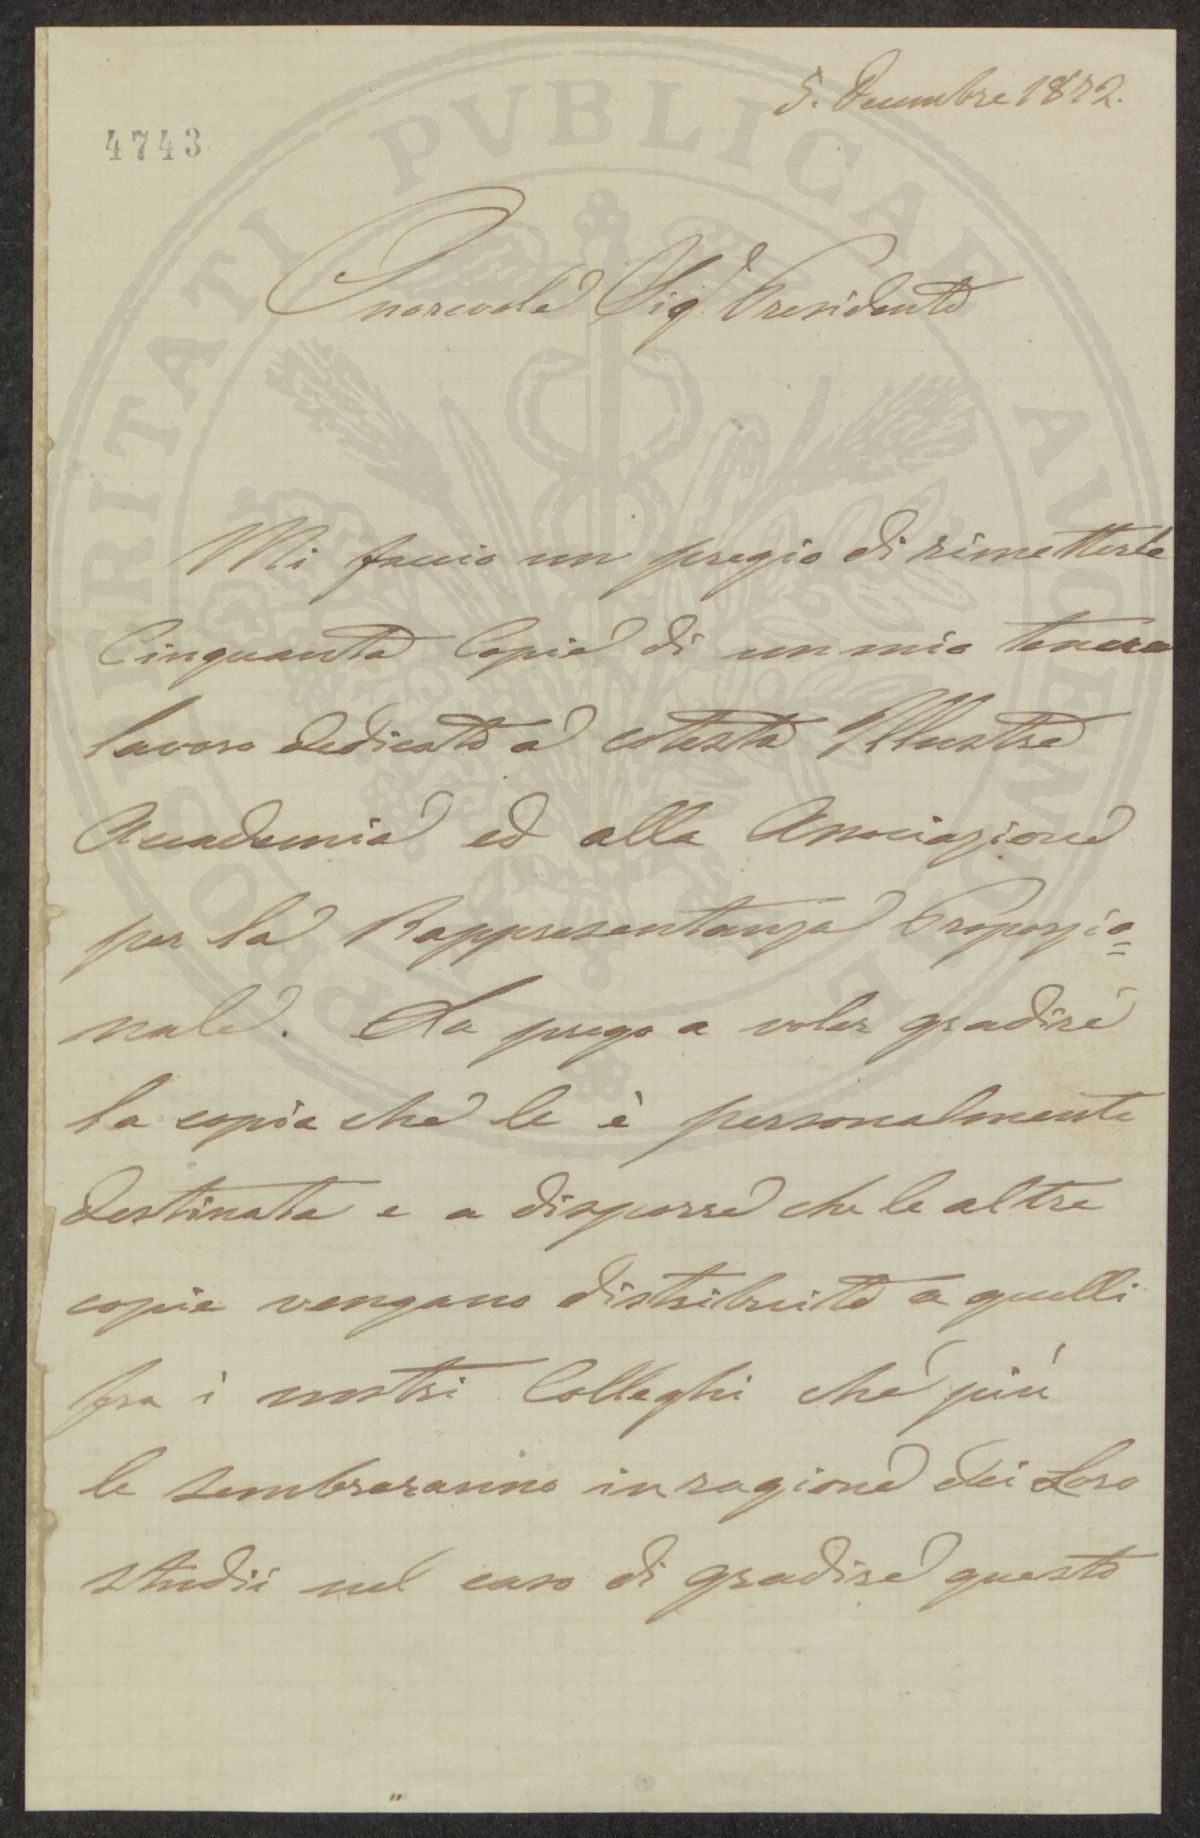 5. Decembre 1872.
4743
PROSPERITATI PUBLICAE AUGENDAE
Onorevole Sig.r Presidente
Mi faccio un pregio di rimetterle
Cinquanta Copie di un mio tenue
lavoro dedicato a cotesta Illustre
Accademia ed alla Associazione
per la Rappresentanza Proporzio=
nale. La prego a voler gradire
la copia che le è personalmente
destinata e a disporre che le altre
copie vengano distribuite a quelli
fra i nostri Colleghi che più
le sembreranno in ragione dei Loro
studii nel caso di gradire questo